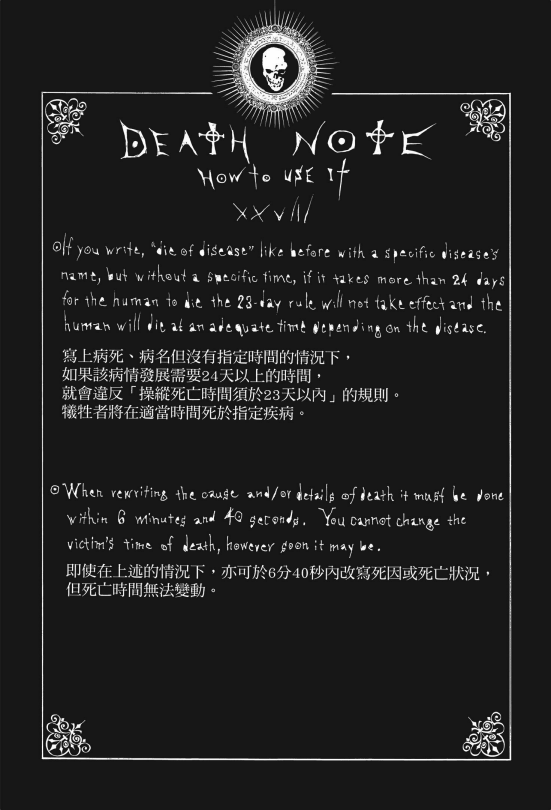 DEATH NOTE
HOW to USE IT
XXVII
If you write, "die of disease" like before with a specific disease's
name, but without a specific time, if it takes more than 24 days
for the human to die the 23-day rule will not take effect and the
human will die at an adequate time depending on the disease.
寫上病死、病名但沒有指定時間的情況下，
如果該病情發展需要24天以上的時間，
就會違反「操縱死亡時間須於23天以內」的規則。
犧牲者將在適當時間死於指定疾病。
When rewriting the cause and/or details of death it must be done
within 6 minutes and 40 seconds. You cannot change the
victim's time of death, however soon it may be.
即使在上述的情況下，亦可於6分40秒內改寫死因或死亡狀況，
但死亡時間無法變動。